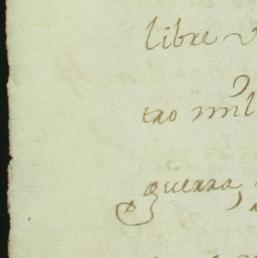 libre
tro mil
guerra,